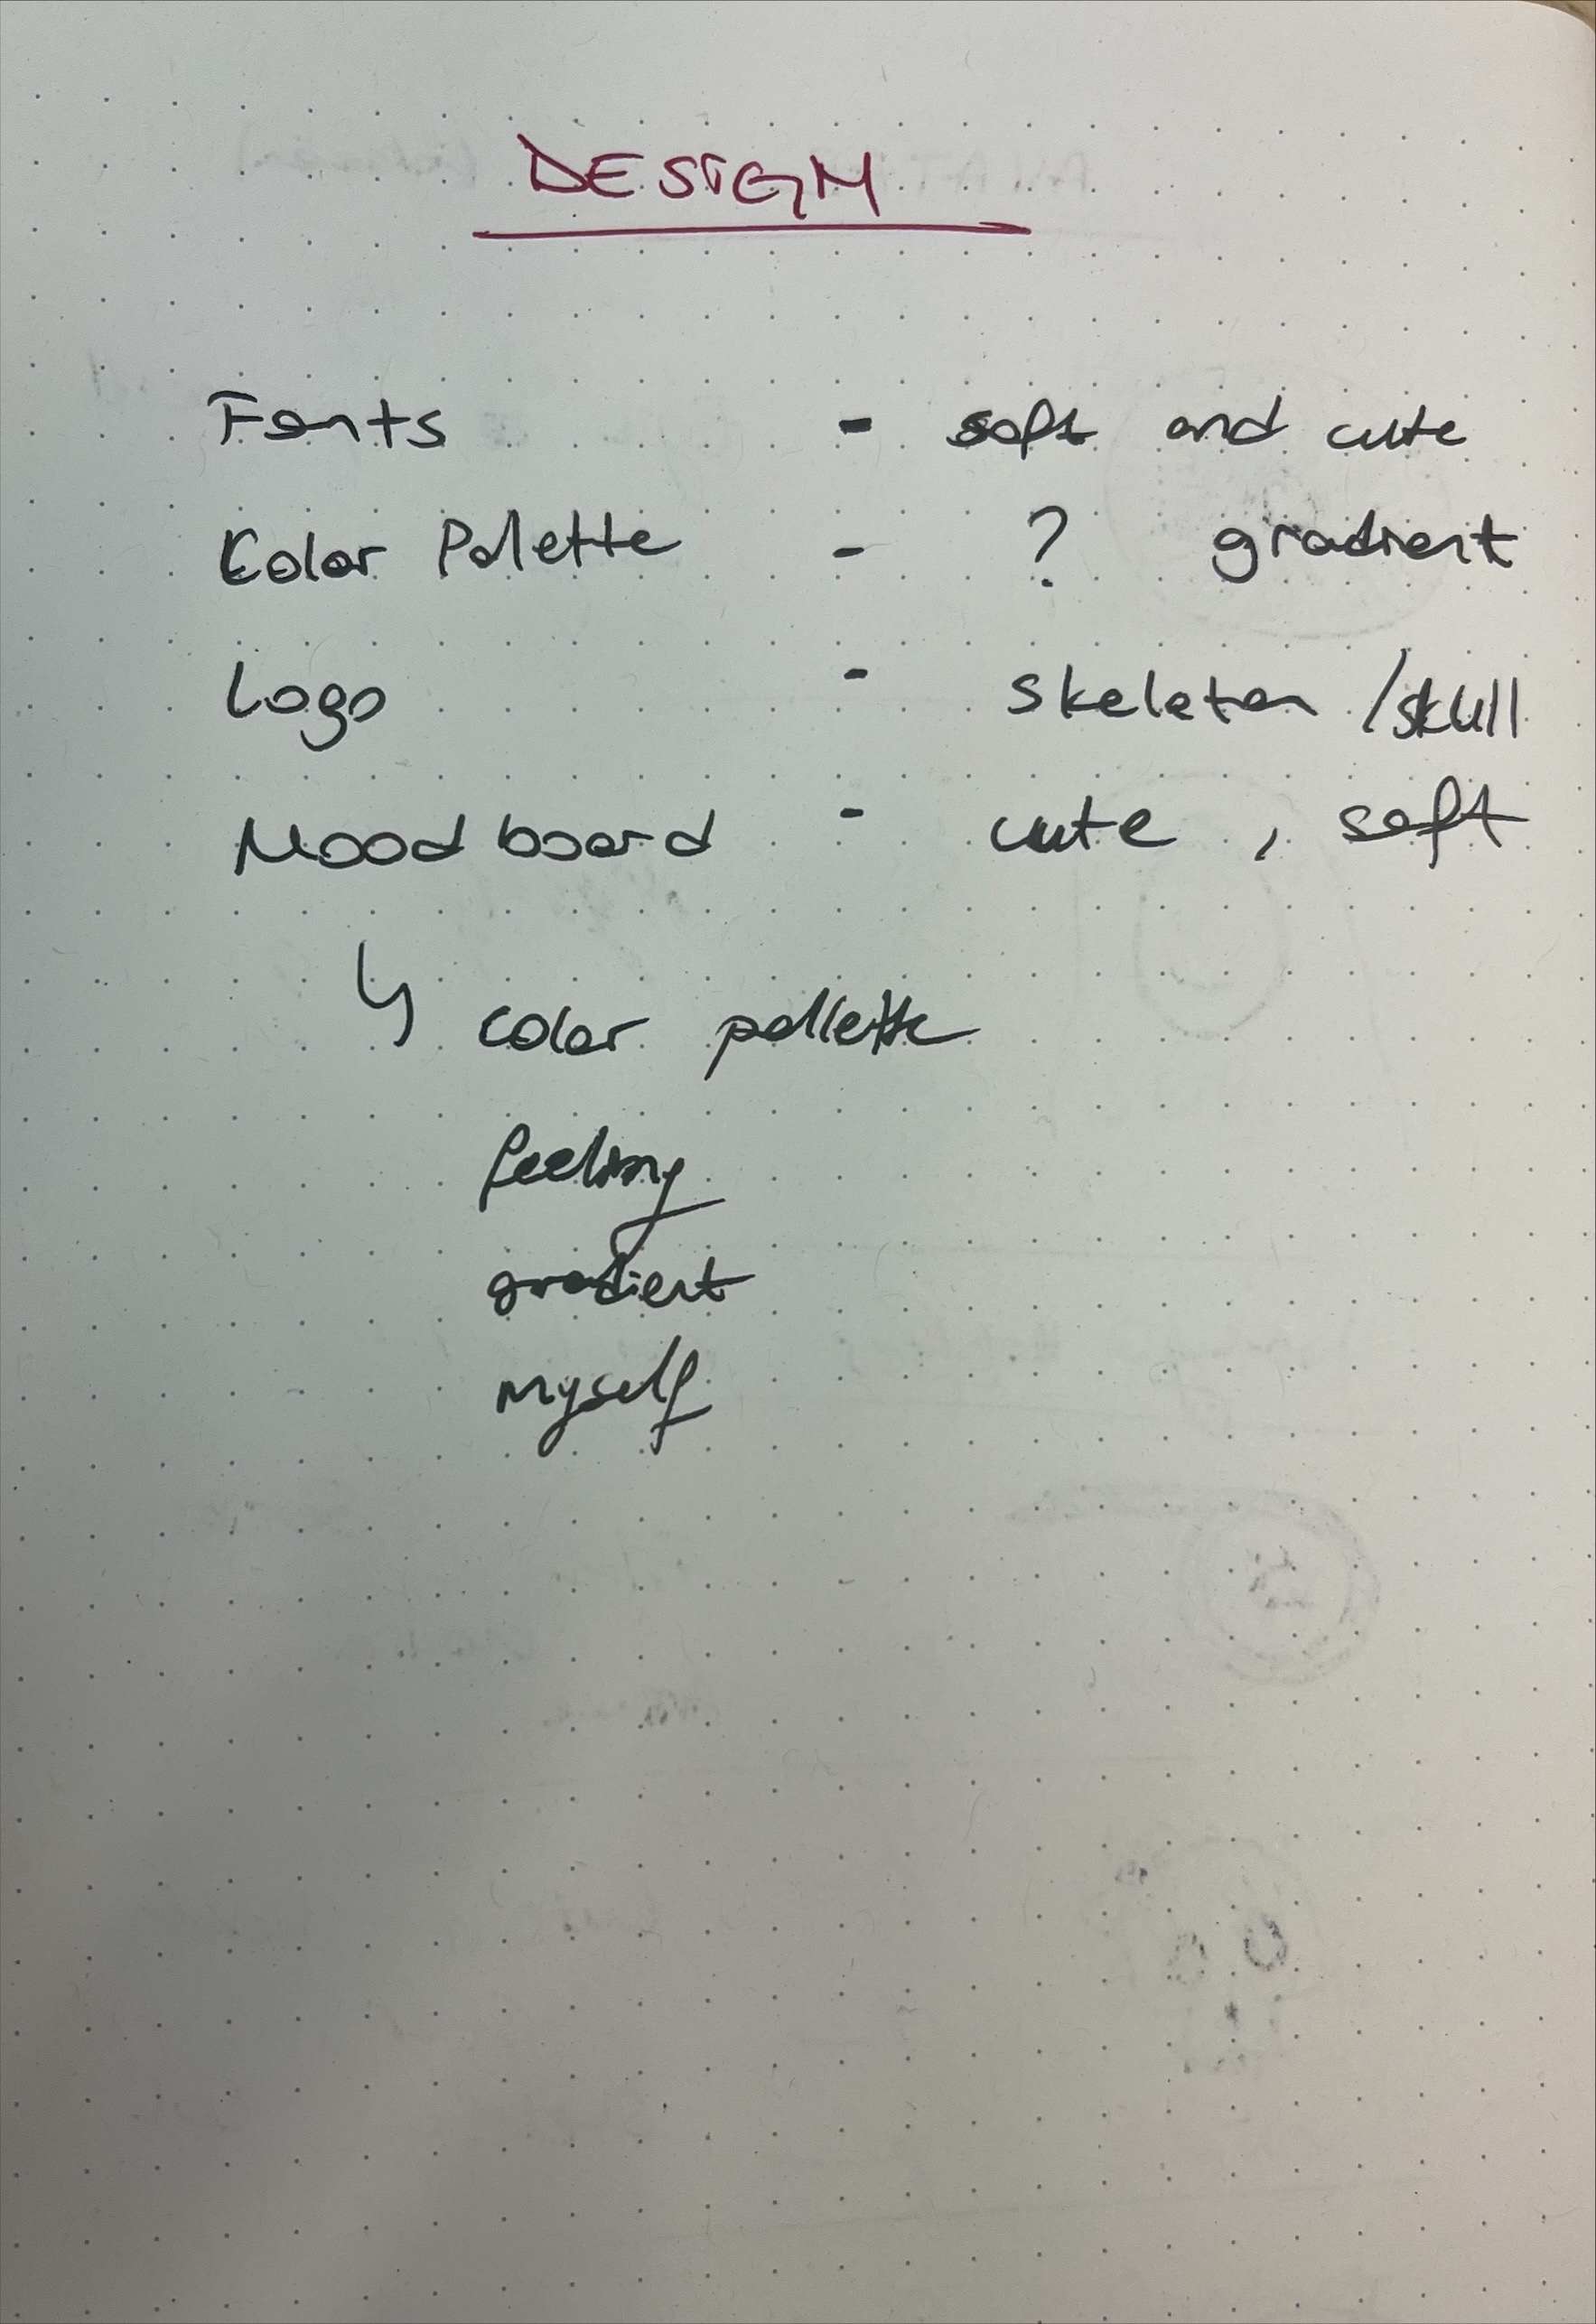 DESIGN
Fonts - soft and cute
Color Palette - ? gradient
Logo - skeleton /skull
Moodboard - cute , soft
↳ color pallette
feeling
gradient
myself